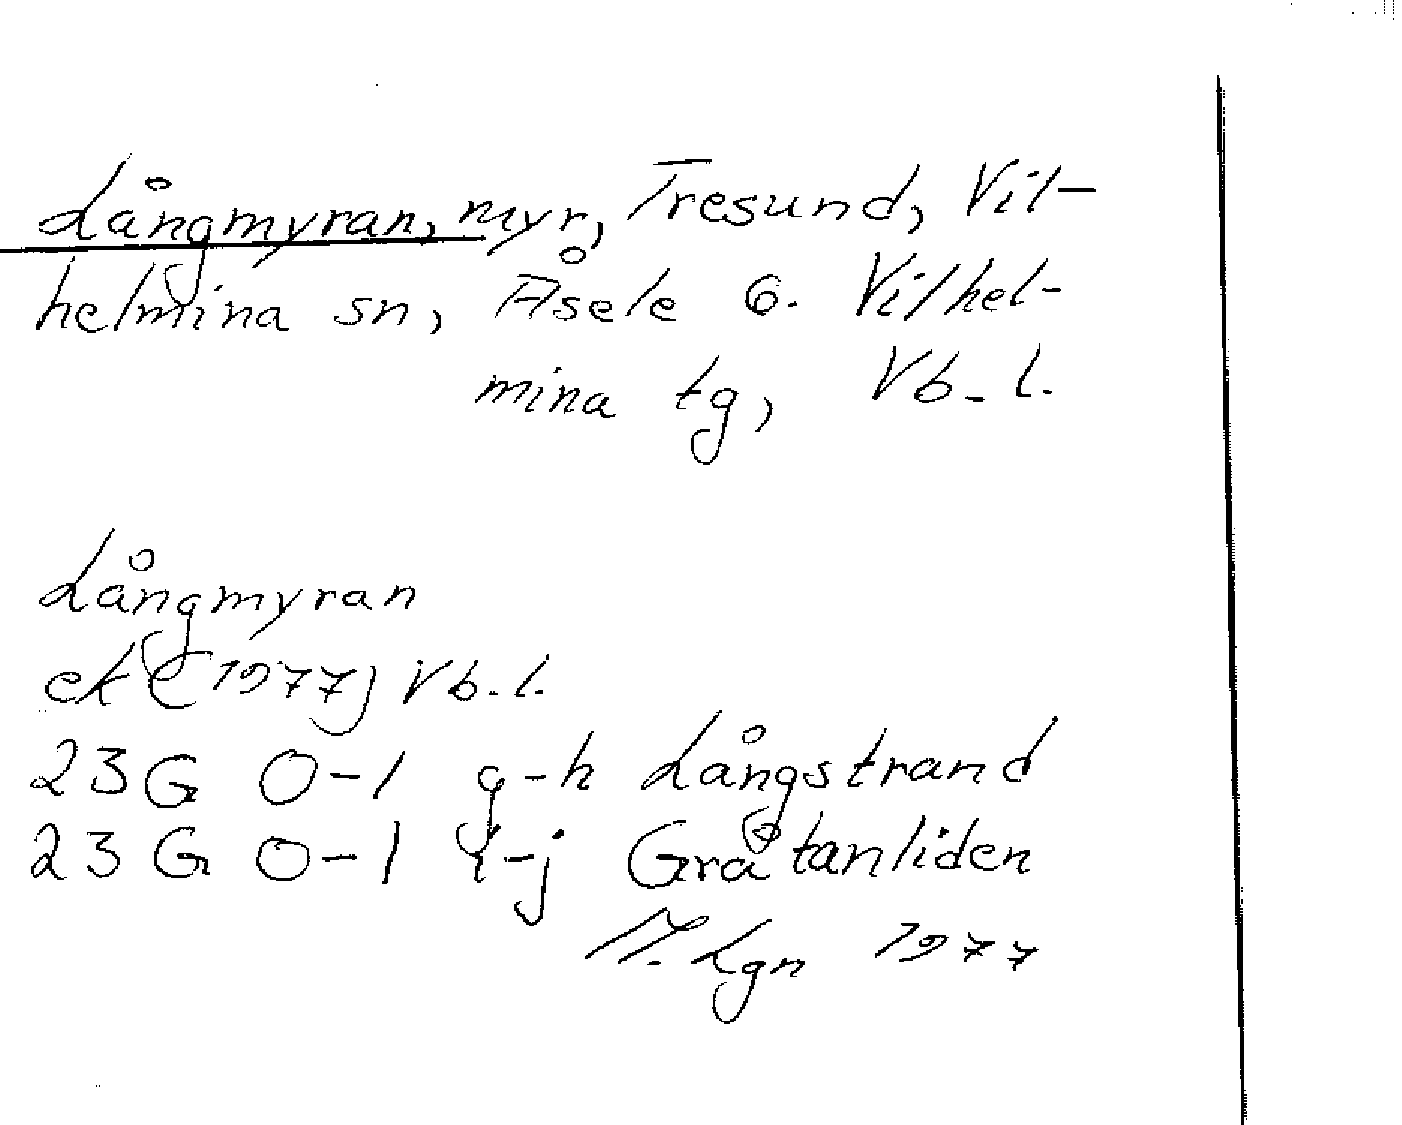 Långmyran, myr, Tresund, Vil-
helmina sn, Åsele o. Vilhel-
mina tg, Vb. l.
Långmyran
ek (1977) Vb. l.
23G 0-1 g-h Långstrand
23G 0-1 i-j Gråtanliden
M. Lgn 1977